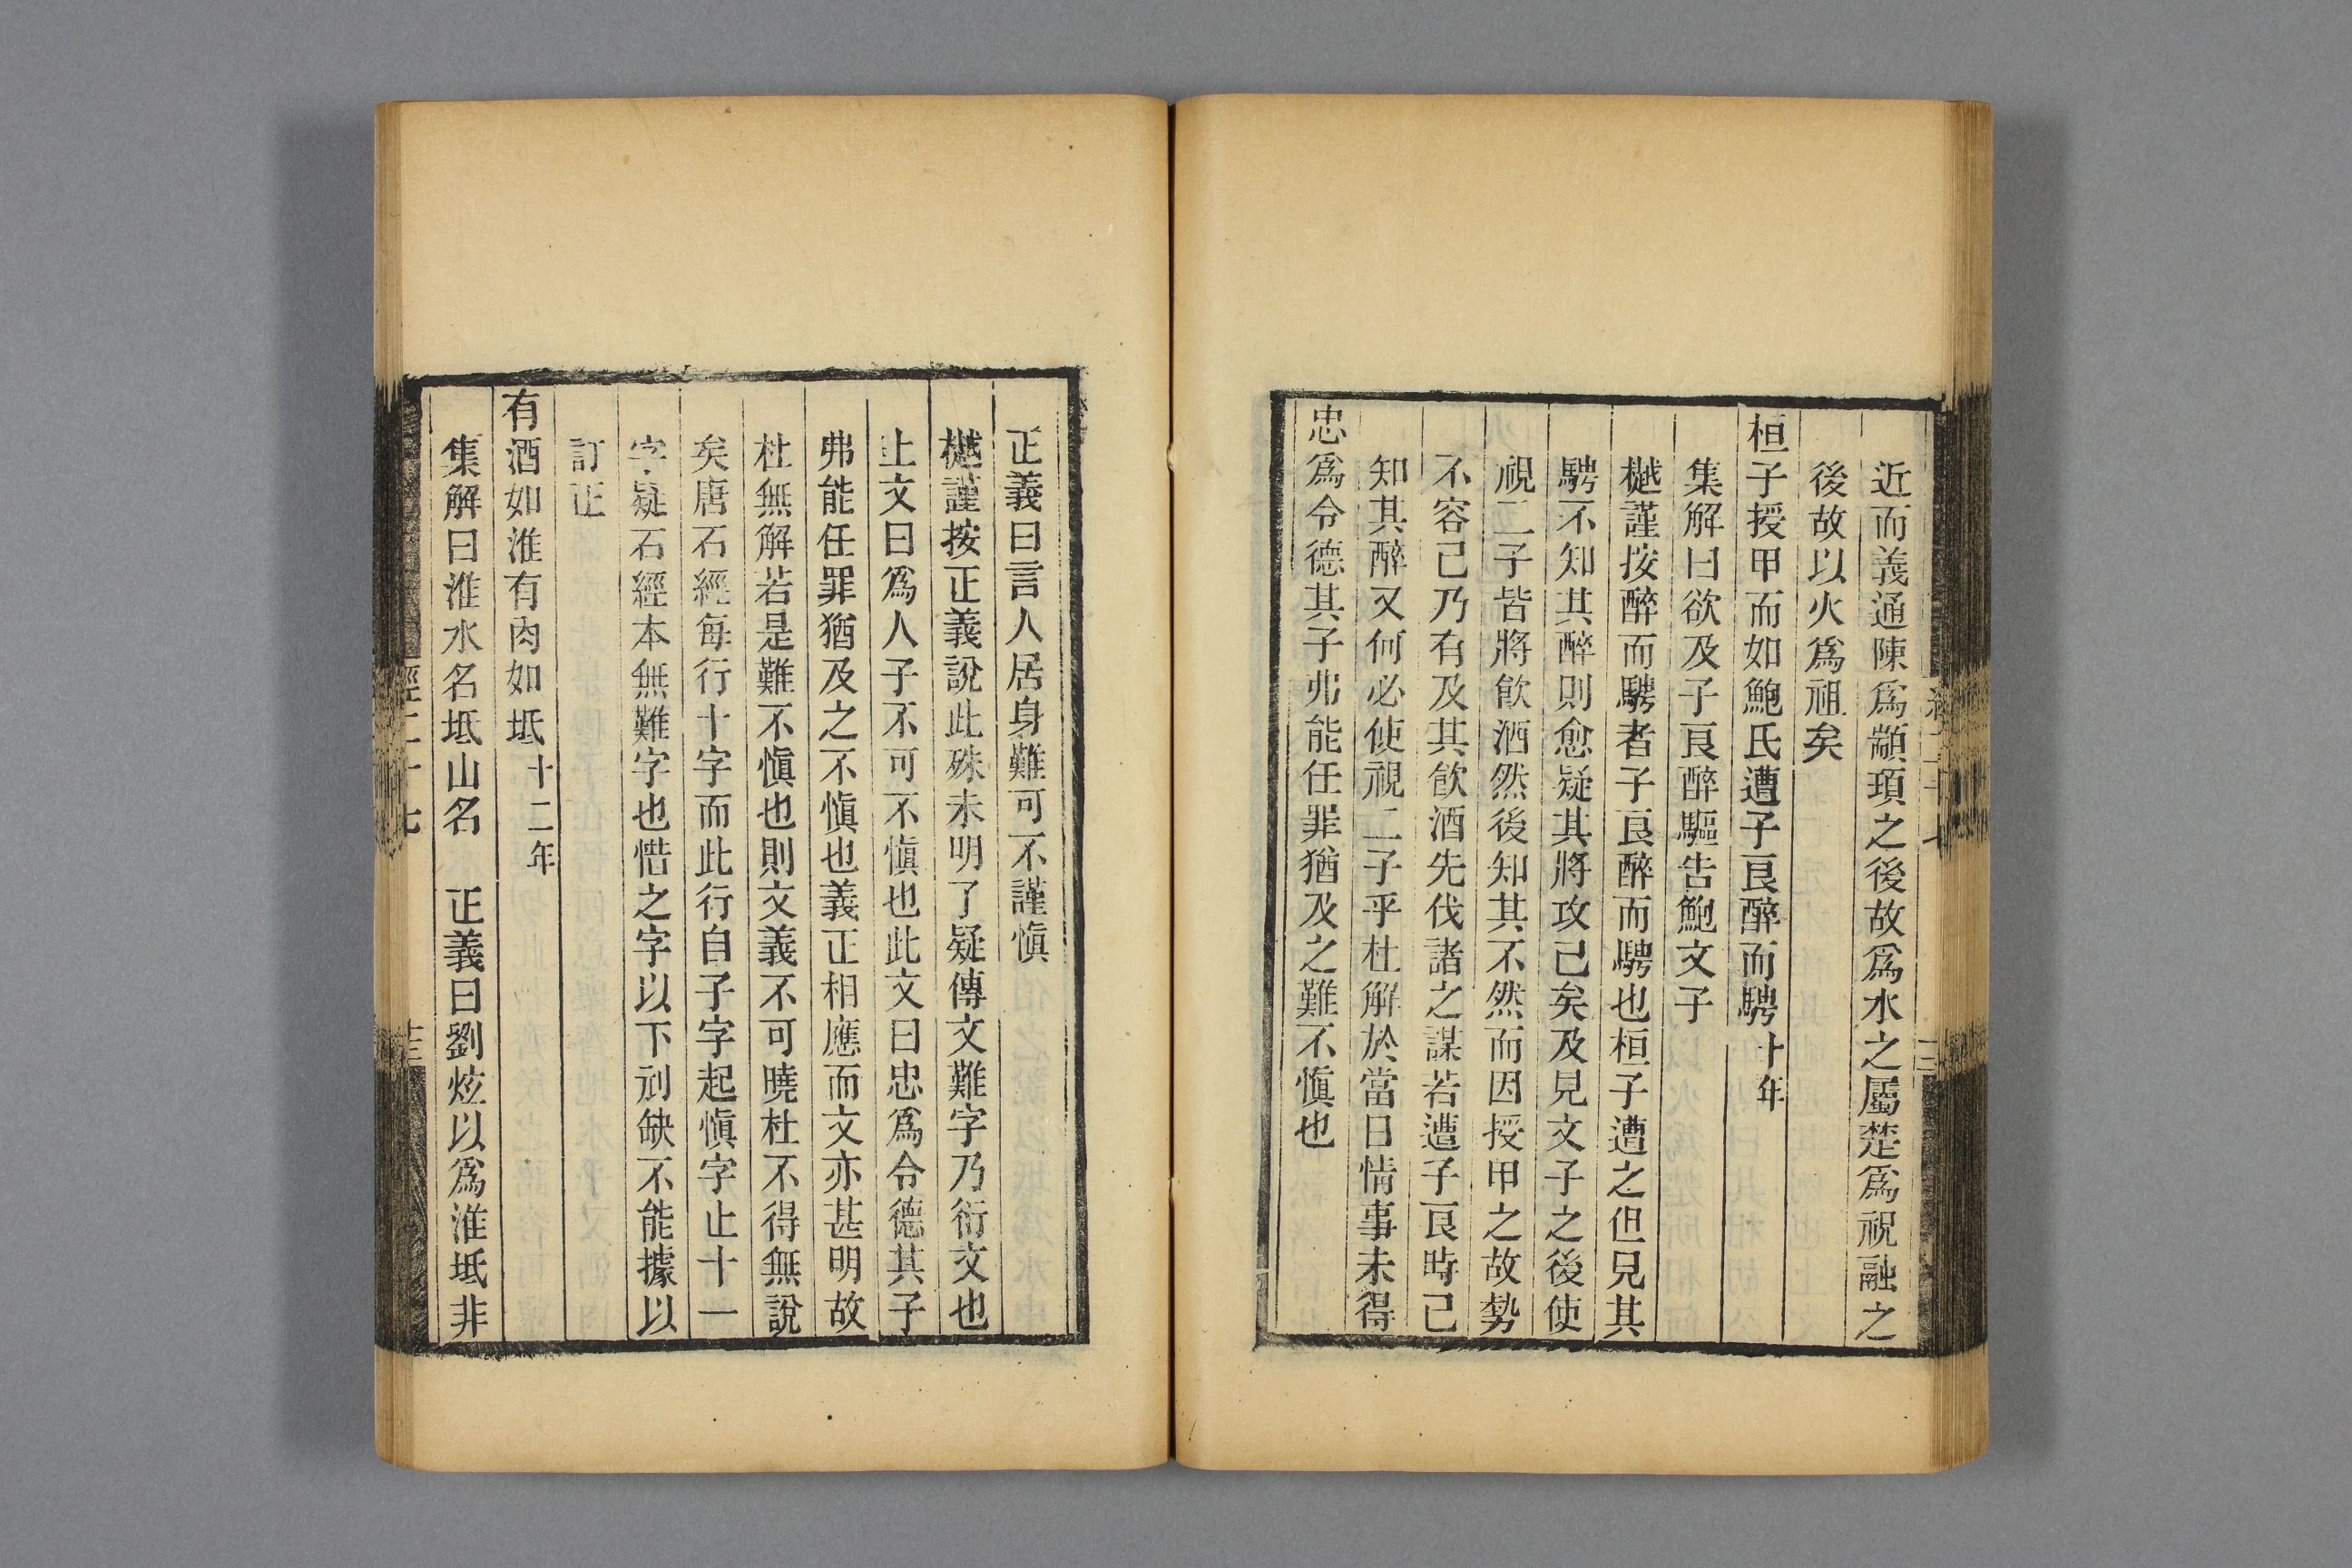 近而義通陳爲顓頊之後故爲水之屬楚爲祝融之
後故以火爲祖矣
桓子授甲而如鮑氏遭子良醉而騁十年
集解曰欲及子良醉驅告鮑文子
樾謹按醉而騁者子良醉而騁也桓子遭之但見其
騁不知其醉則愈疑其將攻己矣及見文子之後使
視二子皆將飮酒然後知其不然而因授甲之故勢
不容已乃有及其飮酒先伐諸之謀若遭子良時已
知其醉又何必使視二子乎杜解於當日情事未得
忠爲令德其子弗能任罪猶及之難不愼也
正義曰言人居身難可不謹愼
樾謹按正義說此殊未明了疑傳文難字乃衍文也
上文曰爲人子不可不愼也此文曰忠爲令德其子
弗能任罪猶及之不愼也義正相應而文亦甚明故
杜無解若是難不愼也則文義不可曉杜不得無說
矣唐石經每行十字而此行自子字起愼字止十一
字疑石經本無難字也惜之字以下刓缺不能據以
訂正
有酒如淮有肉如坻十二年
集解曰淮水名坻山名　正義曰劉炫以爲淮坻非
經二十七